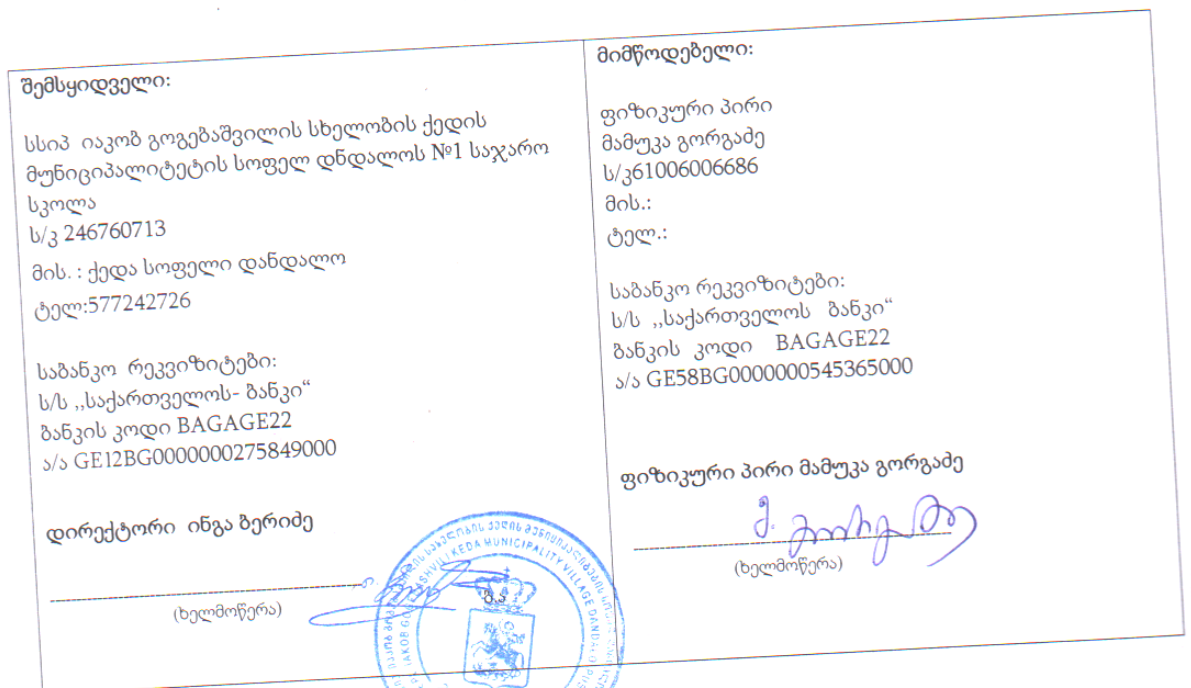 შემსყიდველი:
სსიპ იაკობ გოგებაშვილის სხელობის ქედის
მუნიციპალიტეტის სოფელ დნდალოს №1 საჯარო
სკოლა
ს/კ 246760713
მის. : ქედა სოფელი დანდალო
ტელ:577242726
საბანკო რეკვიზიტები:
ს/ს ,,საქართველოს- ბანკი“
ბანკის კოდი BAGAGE22
ა/ა GE12BG0000000275849000
დირექტორი ინგა ბერიძე
(ხელმოწერა)
ბ.ა
KEDA MUNICIPALITY VILLAGE DANDALO
მიმწოდებელი:
ფიზიკური პირი
მამუკა გორგაძე
ს/კ61006006686
მის.:
ტელ.:
საბანკო რეკვიზიტები:
ს/ს ,,საქართველოს ბანკი“
ბანკის კოდი BAGAGE22
ა/ა GE58BG0000000545365000
ფიზიკური პირი მამუკა გორგაძე
(ხელმოწერა)